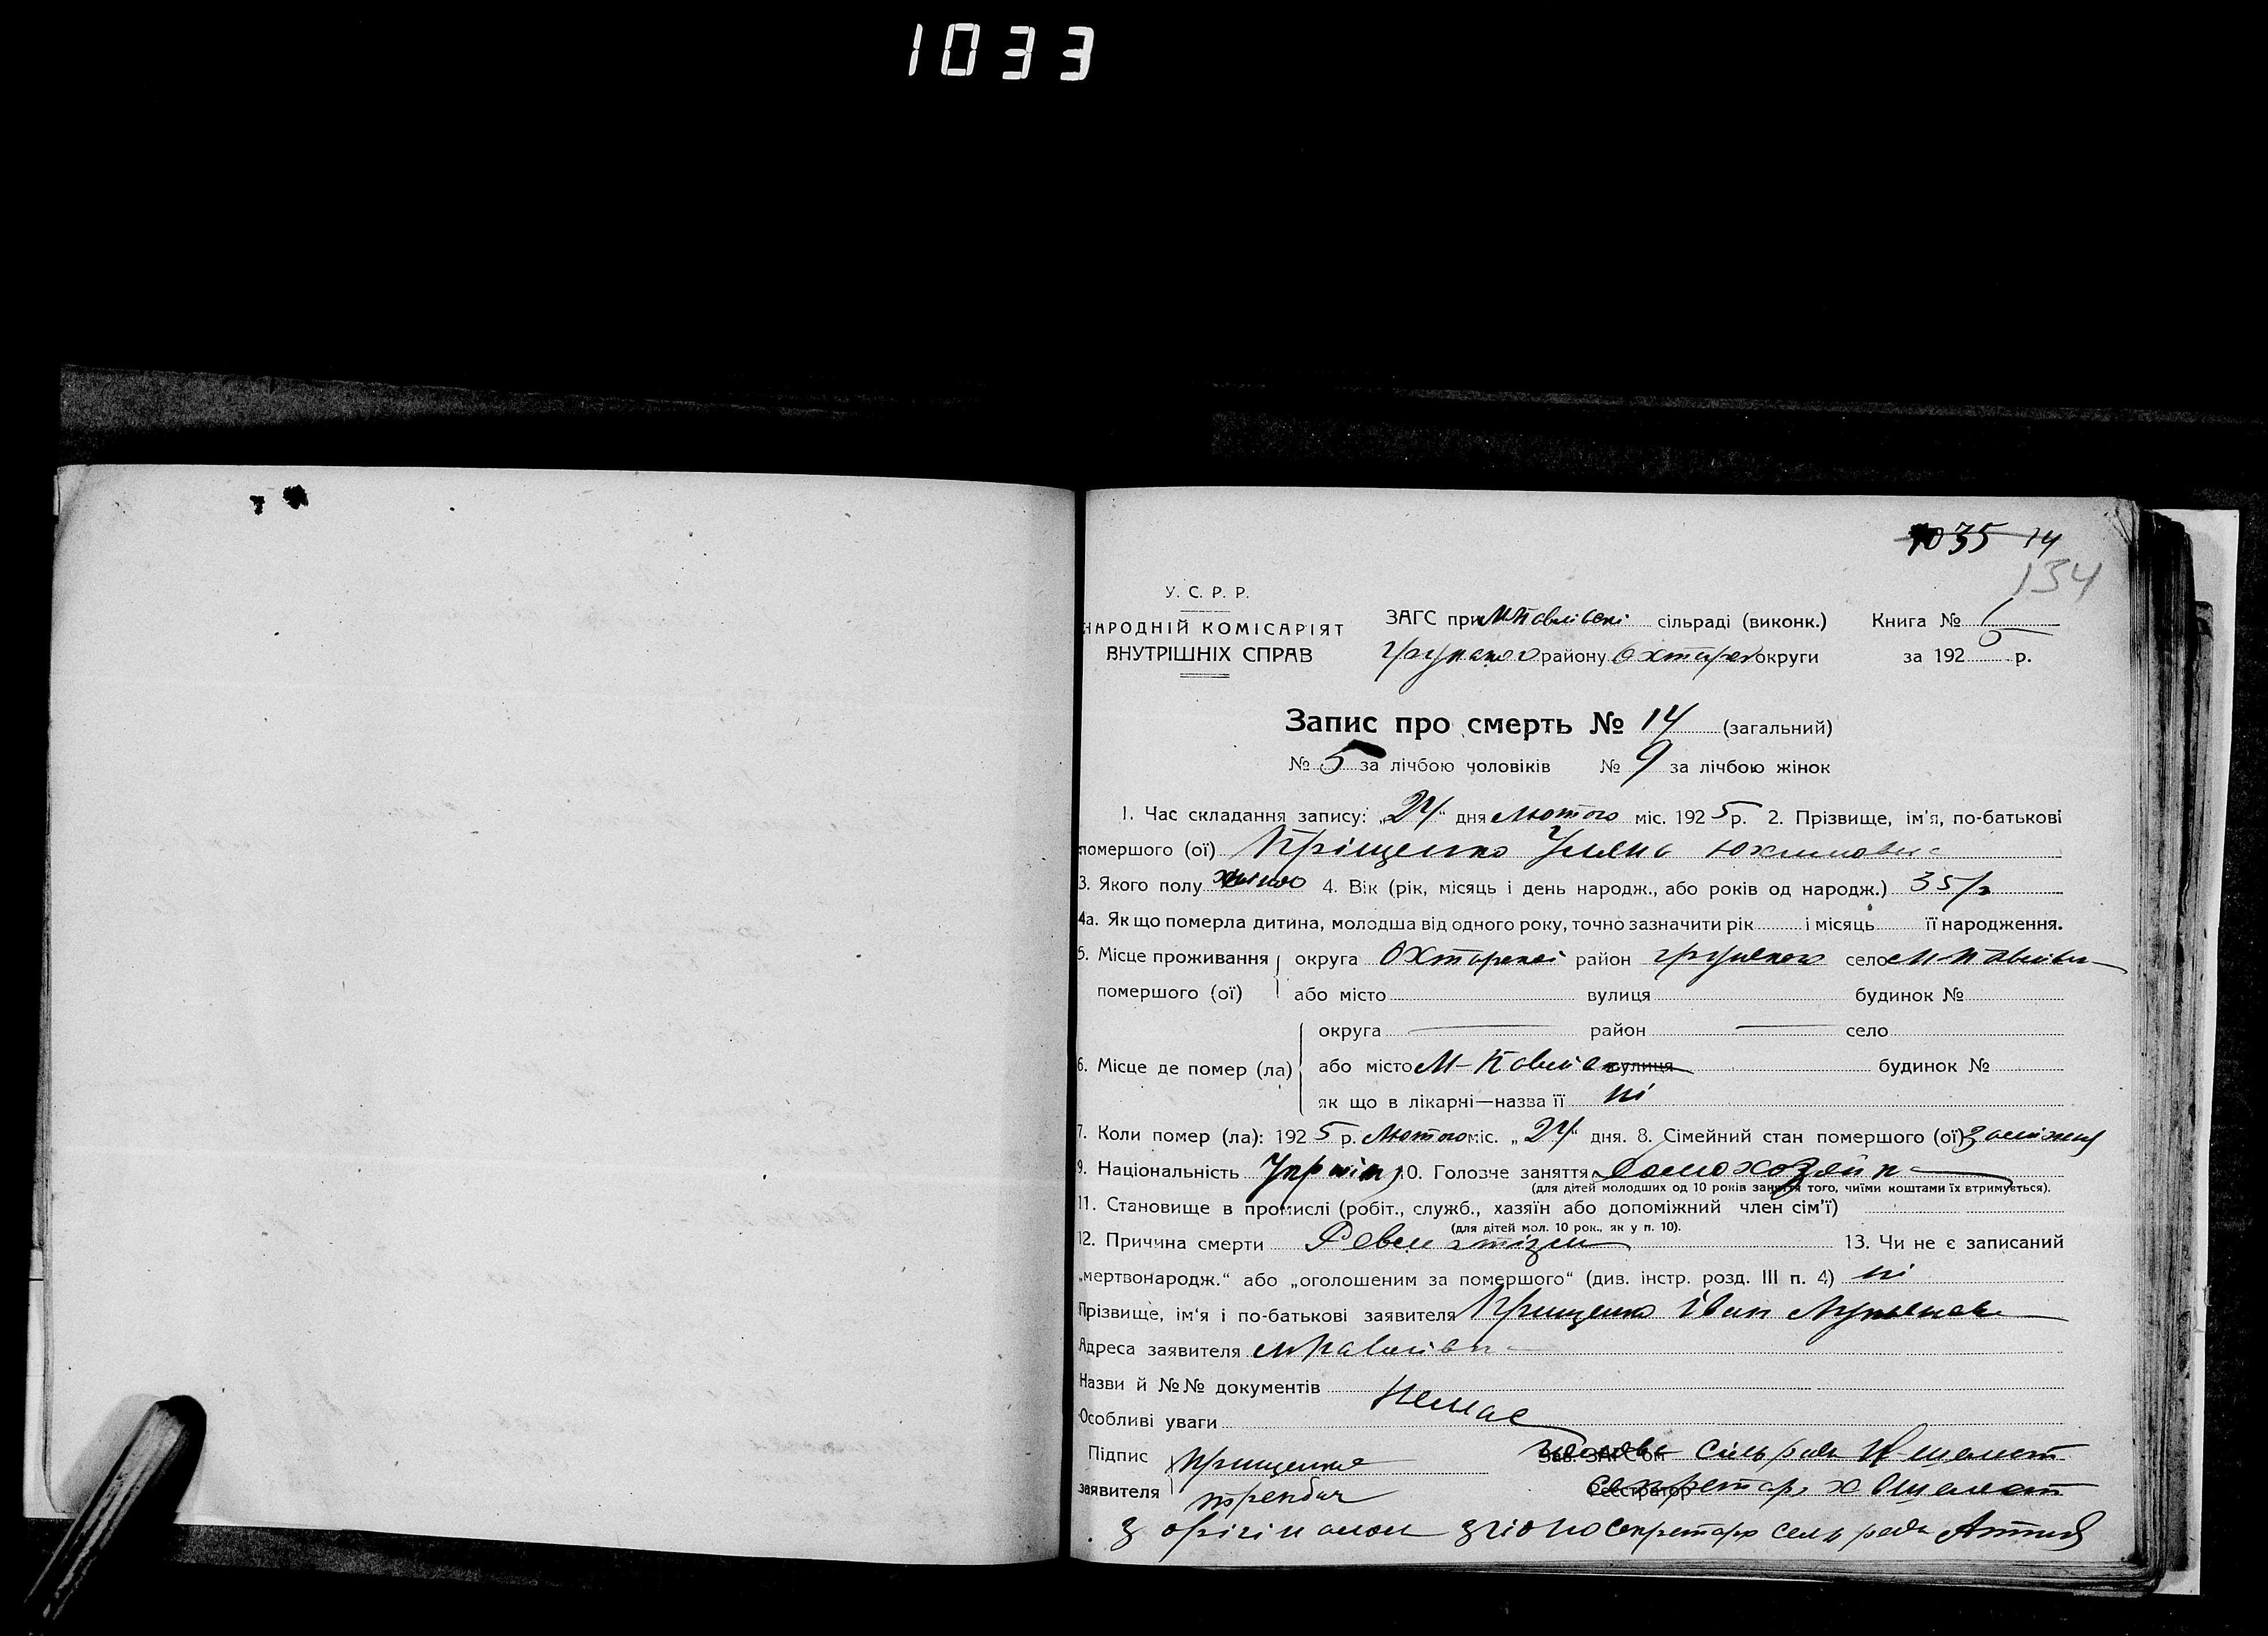 1033
1035 14
134
У. С. Р. Р.
НАРОДНІЙ КОМІСАРІЯТ
ВНУТРІШНІХ СПРАВ
ЗАГС при М Павлівскі сільраді (виконк.) Книга № 1
Грунского району Охтирск округи за 1925 р.
Запис про смерть № 14 (загальний)
№ 5 за лічбою чоловіків № 9 за лічбою жінок
1. Час складання запису: „24“ дня Лютого міс. 1925 р. 2. Прізвище, ім'я, по-батькові
помершого (ої) Пріщенко Уляна Юхимовна
3. Якого полу 4. Вік (рік, місяць і день народж., або років од народж.) 35 р
4а. Як що померла дитина, молодша від одного року, точно зазначити рік і місяць її народження.
5. Місце проживання округа Охтирскоі район Грунского село М-Павлівка
помершого (ої) або місто вулиця будинок №
округа район село
6. Місце де помер (ла) або місто М-Павлівка вулиця будинок №
як що в лікарні—назва її ні
7. Коли помер (ла): 1925 р. Лютого міс. „24“ дня. 8. Сімейний стан помершого (ої) заміжня
9. Національність 10. Головне заняття
(для дітей молодших од 10 років заняття того, чиїми коштами їх втримується).
11. Становище в промислі (робіт., служб., хазяїн або допоміжний член сім'ї)
(для дітей мол. 10 рок., як у п. 10).
12. Причина смерти Ревматізм 13. Чи не є записаний
„мертвонародж.“ або „оголошеним за помершого“ (див. інстр. розд. III п. 4) ні
Прізвище, ім'я і по-батькові заявителя Прищенко Іван
Адреса заявителя М Павлівка
Назви й №№ документів
Немає
Особливі уваги
Підпис Прищенко Зав. ЗАГС'ом Голова сільради
заявителя Реєстратор секретарь
з орігіналом згідно секретарь сельради